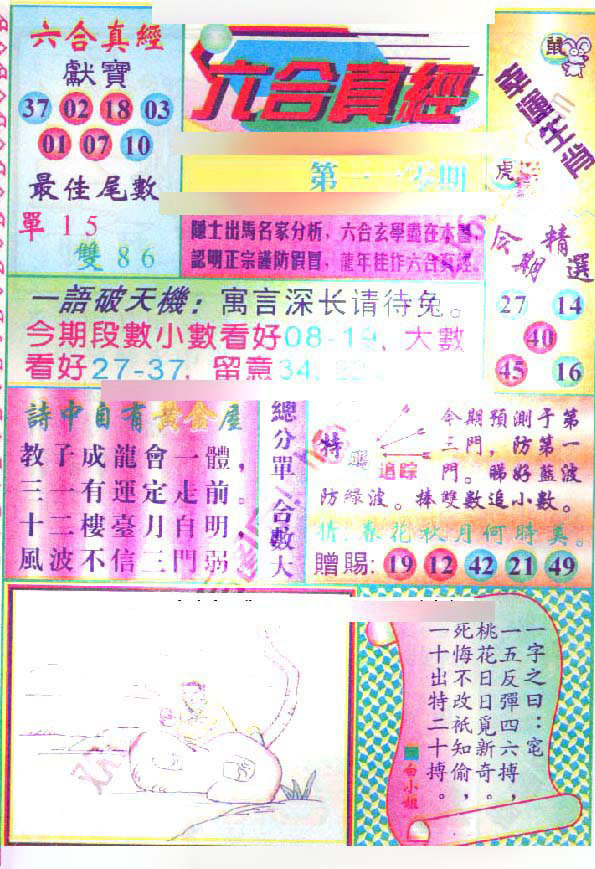 六合真經
獻寶
37 02 18 03
01 07 10
最佳尾數
單 1 5
雙 8 6
六合真經
隱士出馬名家分析，六合玄學盡在本書，
認明正宗謹防假冒，龍年佳作六合真經。
鼠
虎
今期精選
27 14
40
45 16
一語破天機：寓言深长请待兔。
今期段數小數看好08-19，大數
看好27-37，留意34，
詩中自有黃金屋
教子成龍會一體，
三一有運定走前。
十二樓臺月自明，
風波不信三門弱
總分單 合數大
特
追踪
今期預測于第
三門，防第一
門。睇好藍波
防綠波。捧雙數追小數。
猜：春花秋月何時美。
贈賜：19 12 42 21 49
一字之曰：
一五反彈四六搏，
桃花日日覓新奇。
死悔不改祇知偷，
一十出特二十搏。
白小姐